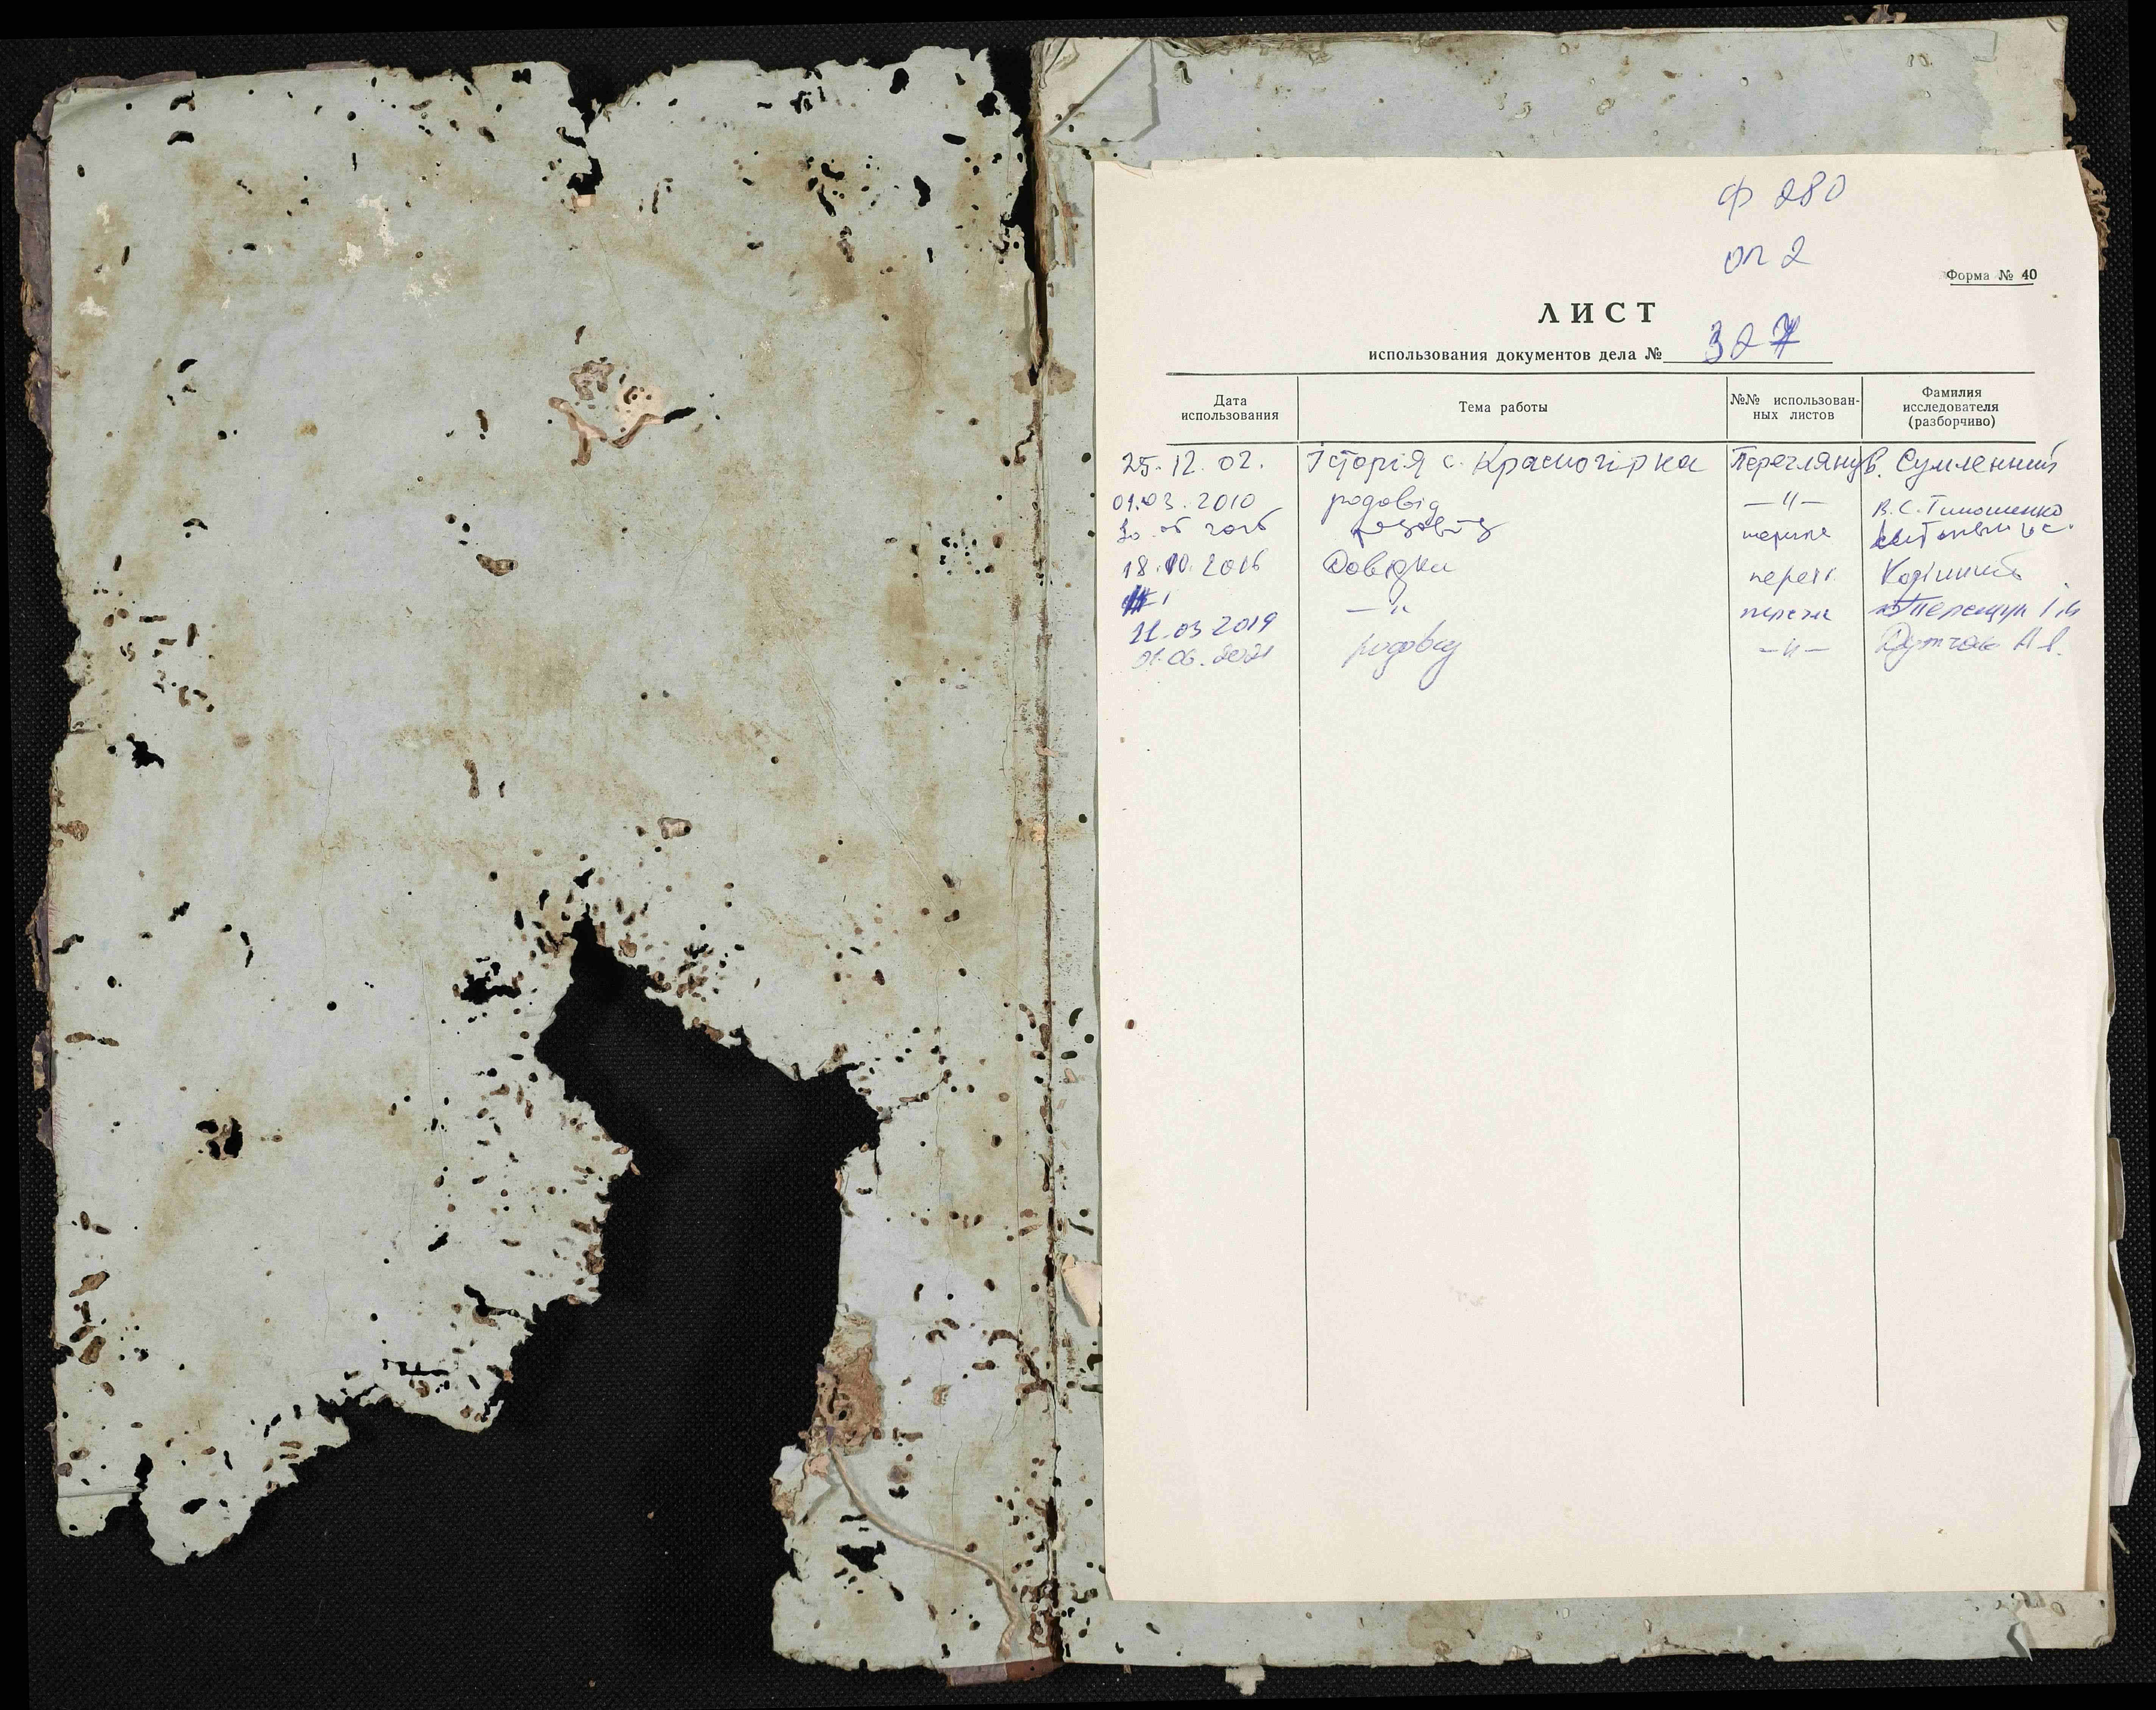 Ф 280
оп 2
Форма № 40
ЛИСТ
использования документов дела № 327
Дата использования
Тема работы
№№ использован-
ных листов
Фамилия
исследователя
(разборчиво)
25.12.02. Історія с. Красногірка Переглянув В. Сумленний
01.03.2010 родовід —"— В.С. Тимошенко
родовід
18.10.2016 Довідки перегл.
—"—
11.03 2019
01.06.2021 родовід —"— А.В.